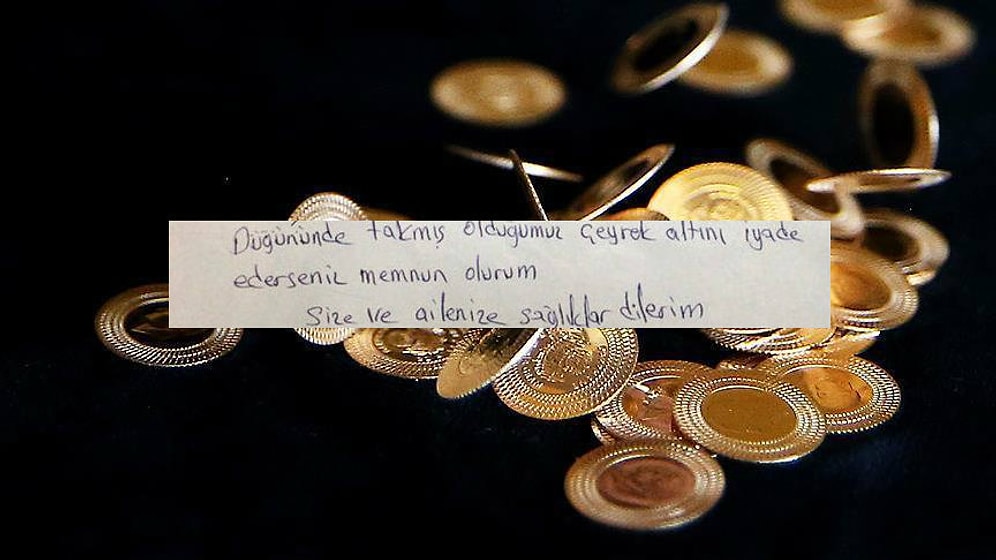 Düğününde takmış olduğumuz çeyrek altını iyade
ederseniz memnun olurum
Size ve ailenize sağlıklar dilerim